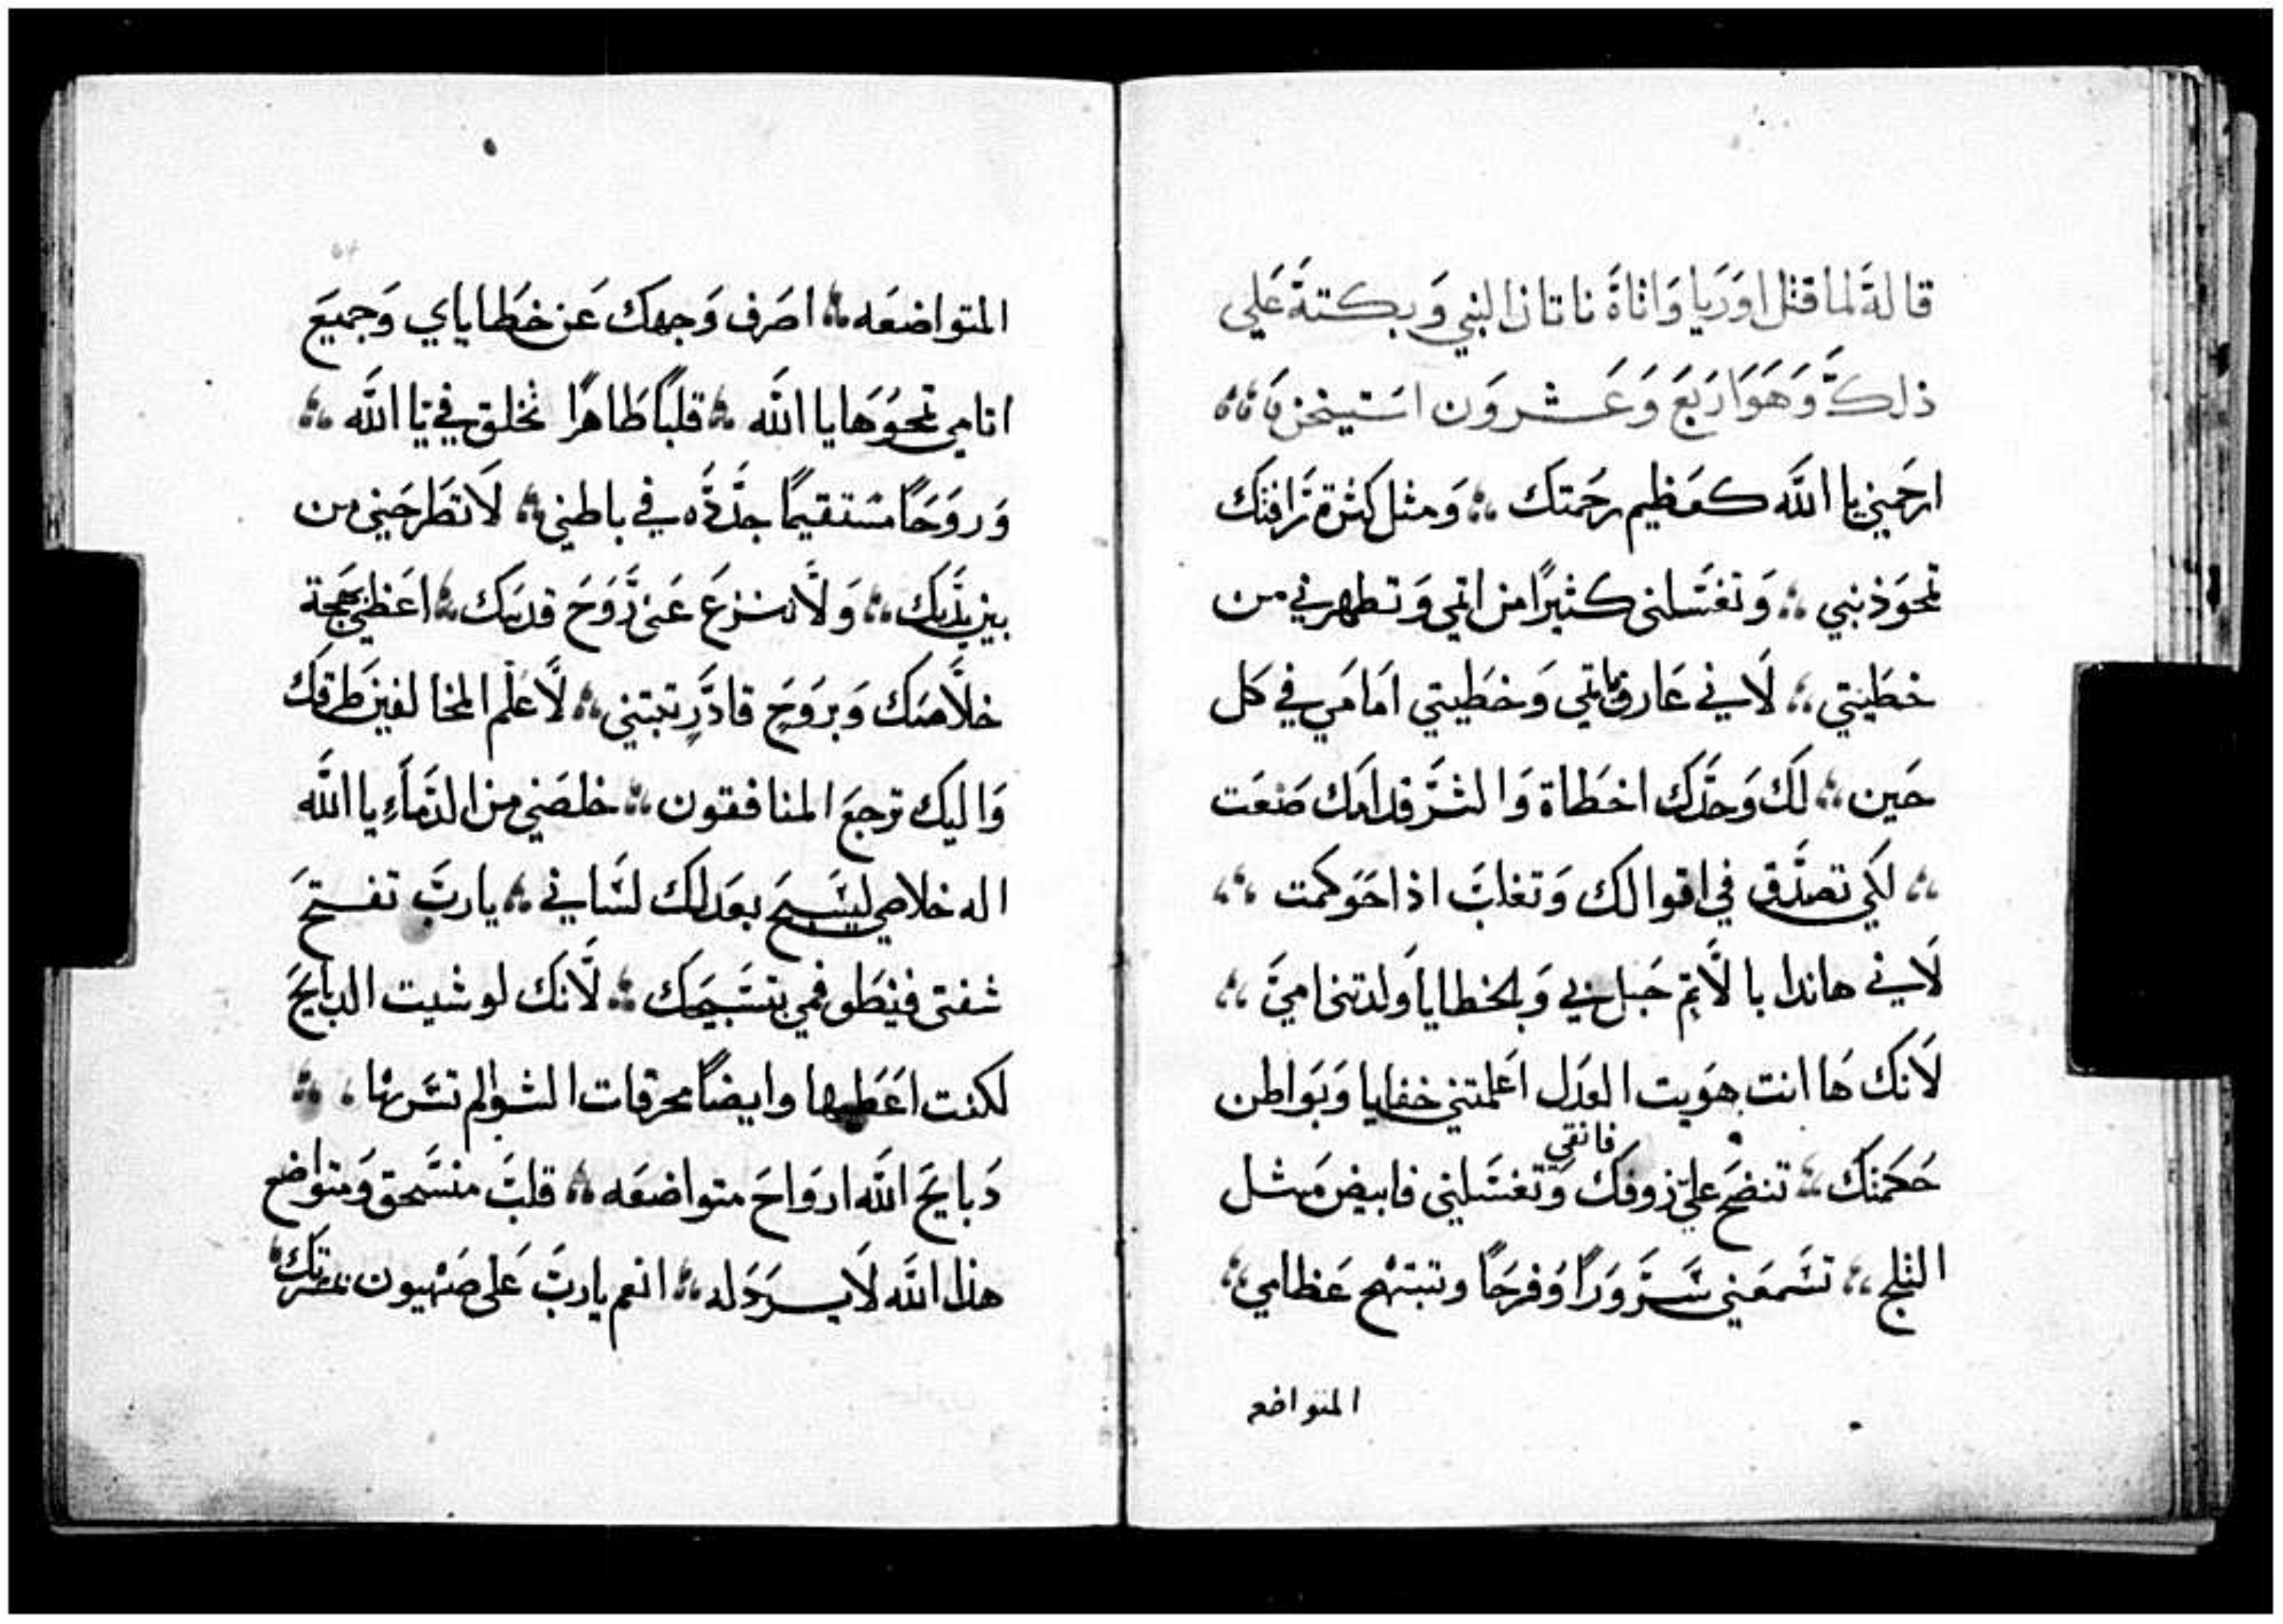 قالهَ لما قتل اوَرَيا وَاتاهَ ناتان النبي وَبكتهَ عَلى
ذلكَ وَهَوَ ارَبَعَ وَعَشروَن استيخن
ارحَمني يا اللَّه كعَظيم رحَمتك ؞ وَمثل كثرة رَافتك
تمحوَ ذنبي ؞ وَتغسَلني كثيرًا من اثمي وَتطهرني من
خطَيتي ؞ لَاني عَارف باثمي وَخطَيتي اَمامَي في كل
حَين ؞ لكَ وَحدَّكَ اخطَاة وَالشرَّ قدامَك صَنعَت
؞ لكَي تصدَّق في اقوالك وَتغلبَ اذا حَوَكمت ؞
لَاني هاندا بالَّاثم حَبل بي وَبالخطايا وَلدتني اميَ ؞
لَانكَ هَا انت هوَيت العَدَل اعَلمتني خفايا وَبَواطن
فانقى
حَكمَتك ؞ تنضحَ عليَّ زوفك وَتغسَلني فابيض مَثل
الثلج ؞ تسَمعَني سَّروَرَاً وَفرحَاً وتبتهج عَظامي ؞
المتواضعه
المتواضعَه ؞ اصَرف وَجهكَ عَن خطَاياي وَجميَعَ
اتامي تمحوُهَا يا اللَّه ؞ قلبَاً طَاهرًا تخلق في يَا اللَّه ؞
وَروَحَاً مستقيمًا جدَّدَه في باطني ؞ لَا تطَرحَني من
بين يدَيك ؞ وَلَّا تنزعَ عَنى رَّوَحَ قدسَك ؞ اعَطني بهَجة
خلَّاصَك وَبروَحَ قادَّرٍ تثبتني ؞ لَّاعَلّم المخالفينَ طرَقك
وَاليَك ترَجعَ المنافقون ؞ خلصَني من الدَّمَآءِ يا اللَّه
اله خلاصي ليسَبحَ بعَدلك لسَاني ؞ يا ربَّ تفتحَ
شفتى فينطَق فمي بتسَّبيحَك ؞ لَّانكَ لو شيت الدبايحَ
لكنت اعَطيها وايضَاً محرقات الشوا لم تسَر بها ؞
دَبايحَ اللَّه اروَاحَ متواضعَه ؞ قلبَ منسَّحق وَمتواضع
هذا اللَّه لَا يرَدَله ؞ انعم يا ربَّ عَلى صَهيون بمسَرتك